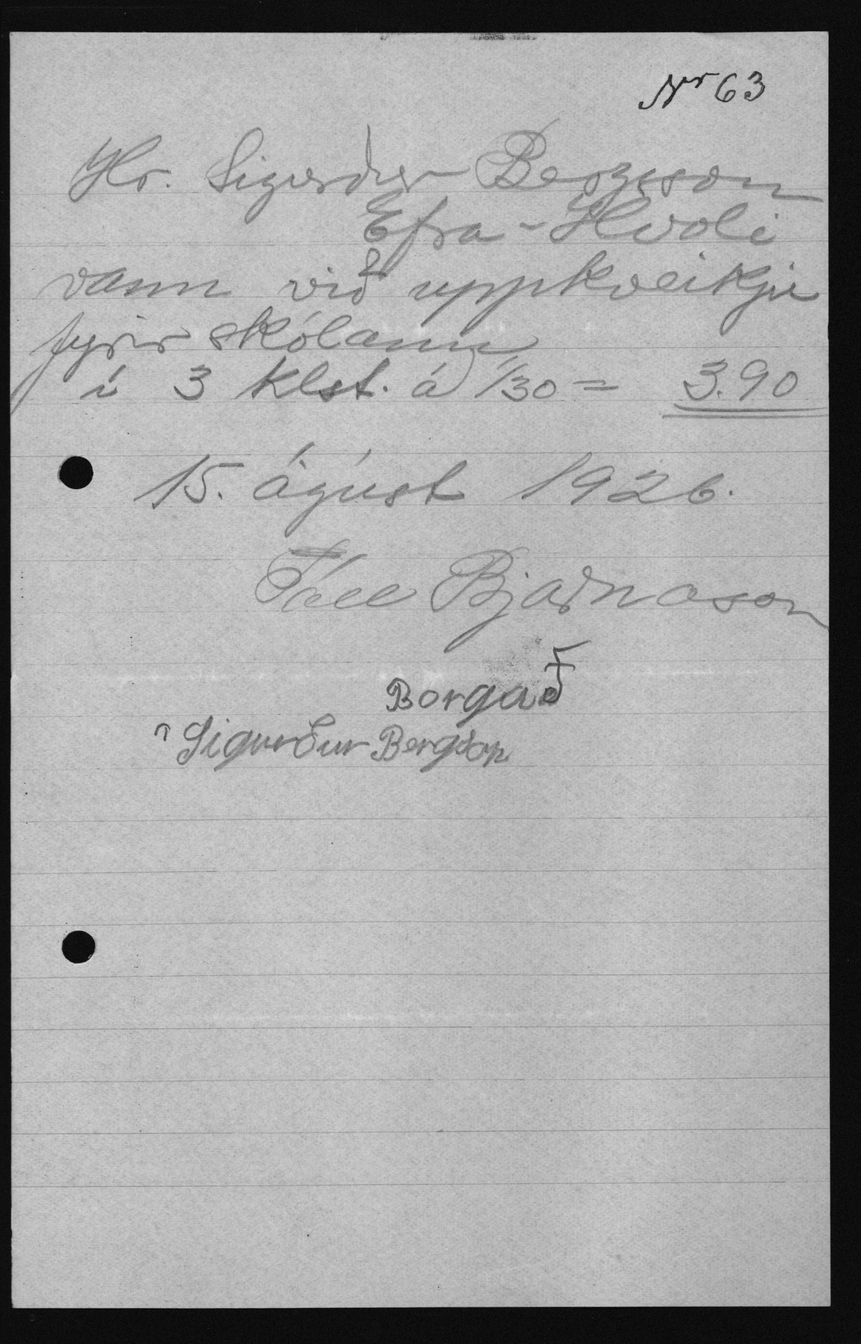 Nr 63
Hr. Sigurður Bergsson
Efra-Hvoli
vann við uppkveikju
fyrir skólann
í 3 klst. á 1/30 = 3.90
15. ágúst 1926.
Páll Bjarnason
Borgað
Sigurður Bergsson